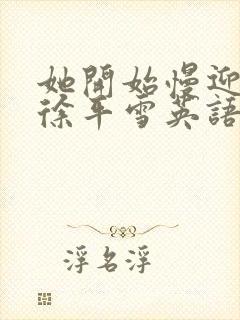 她開始慢迎
徐平雪英語
浮名浮